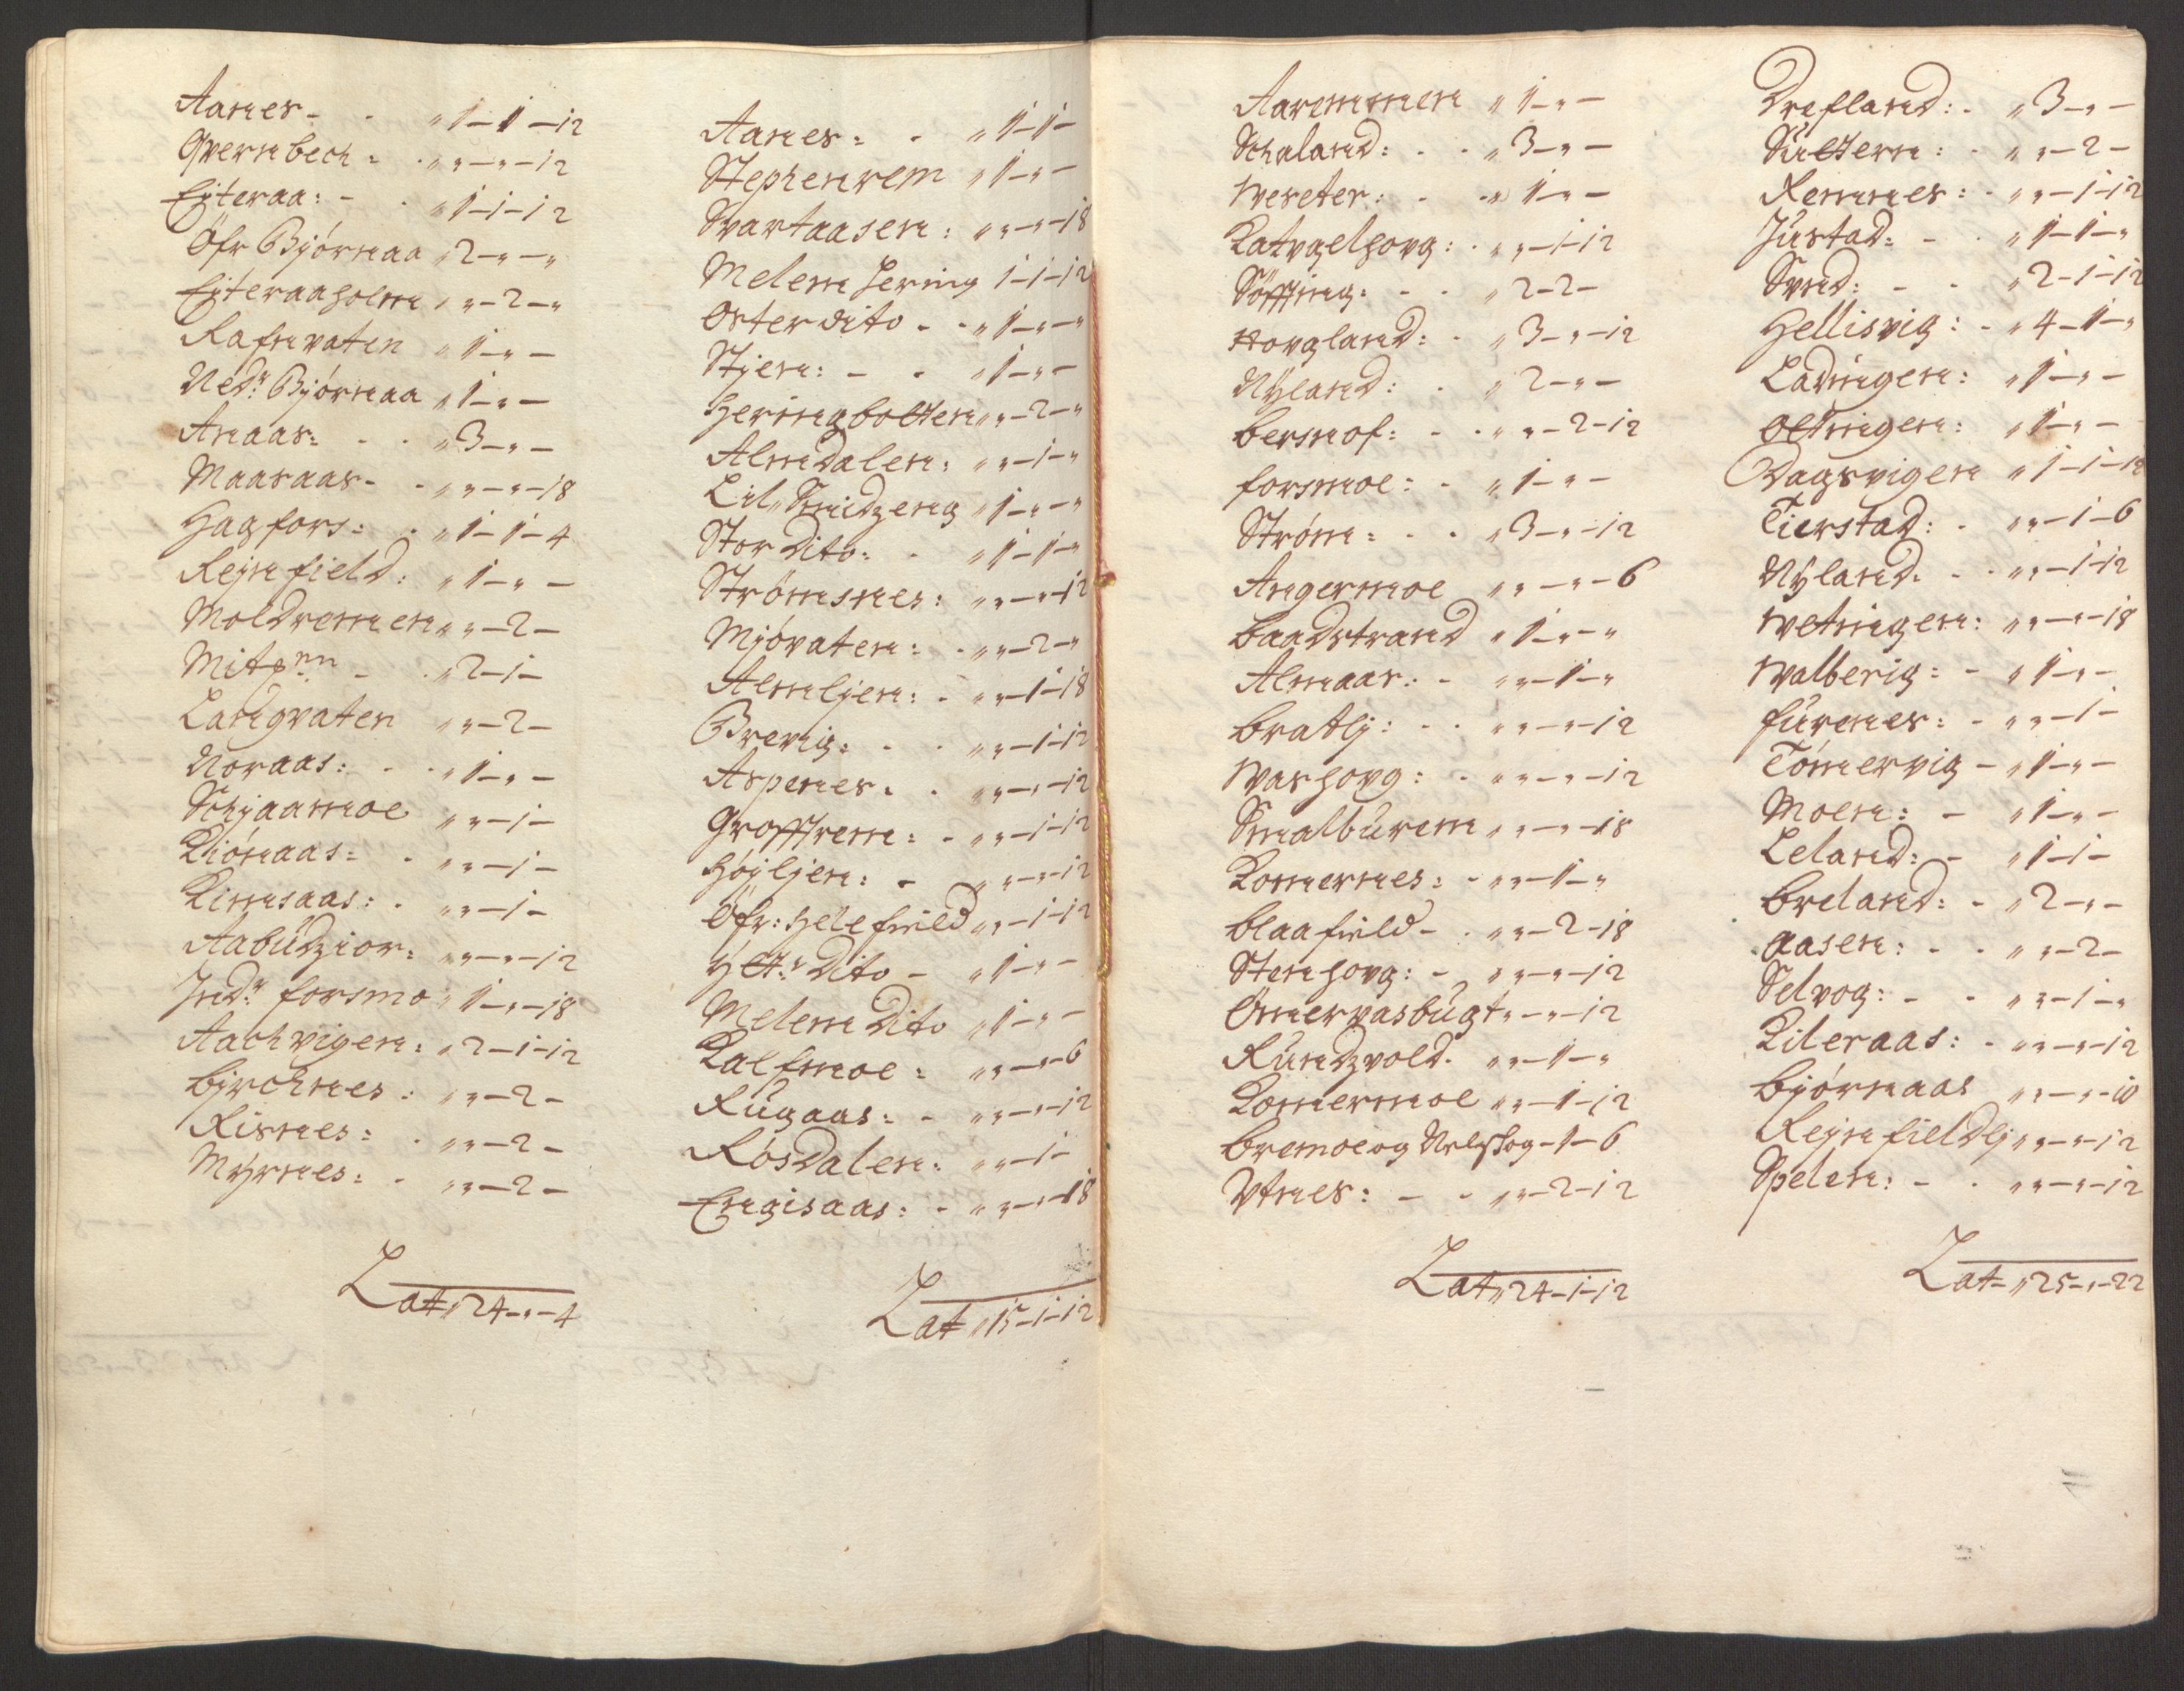 Aanes - - „ 1 - 1 - 12
Qvernbech = - „ „ - „ - 12
Eyteraa: - - „ 1 - 1 - 12
Öfr Bjórnaa „ 2 - „ - „
Eyteraaholm „ „ - 2 - „
Rafnvaten „ 1 - „ -
Nedr Bjórnaa „ 1 - „ -
Anaas= - - „ 3 - „ -
Maasaas - - „ „ - „ - 18
Hagfors: - „ 1 - 1 - 4
Rejnfield: „ 1 - „ -
Moldremen „ „ - 2 -
„ 2 - 1 -
Langvaten „ „ - 2 -
Noraas: - - „ 1 - „ -
Schjaamoe „ „ - 1 -
Kiónaas= - „ „ - 1 -
Kinsaas: - „ „ - 1 -
Aabudzior: „ „ - „ - 12
Indr forsmo „ 1 - „ - 18
Aachvigen: „ 2 - 1 - 12
Bjrchnes: „ „ - 2 -
Risnes: - „ „ - 2 -
Myrnes: - „ „ - 2 -
Lat „ 24 - „ - 4
Aanes: - „ 1 - 1 -
Stephenrem „ 1 - „ -
Svartaasen: „ „ - „ - 18
Melem Hering 1 - 1 - 12
Oster dito - - „ 1 - „ - „
Stjen: - - „ 1 - „ -
Heringbotten „ „ - 2 - „
Almdalen: „ „ - 1 - „
Lil Smidzeng „ 1 - „ - „
Stor dito: - „ 1 - 1 - „
Strómsnes: „ „ - „ - 12
Mjóvaten: - „ „ - 2 - „
Almljen: - „ „ - 1 - 18
Brevig: - - „ „ - 1 - 12
Aspenes: - „ „ - „ - 12
Groffrem: - „ „ - 1 - 12
Hójljen: - „ „ - „ - 12
Öfr: Helefield „ „ - 1 - 12
Ytr dito - „ 1 - „ -
Melem dito „ 1 - „ -
Kalfmoe: „ „ - „ - 6
Rugaas: - „ „ - „ - 12
Rósdalen: „ „ - 1 -
Engisaas: - „ „ - „ - 18
Lat „ 15 - 1 - 12
Aaremmen „ 1 - „ -
Schaland: - - „ 3 - „ -
Weseter: - - „ 1 - „ -
Katvgelhovg: - „ „ - 1 - 12
Söffting: - - „ 2 - 2 -
Hovgland: - „ 3 - „ - 12
Nÿland: - „ 2 - „ -
Bersnof: - - „ „ - 2 - 12
forsmoe: - „ 1 - „ -
Stróm: - - „ 3 - „ - 12
Angermoe „ „ - „ - 6
Baadstrand „ 1 - „ - „
Almaas: - „ „ - 1 - „
Bratlj: - - „ „ - „ - 12
Washovg: - „ „ - „ - 12
Smalburem „ „ - „ - 18
Konernes: - „ „ - 1 - „
Blaafield - - „ „ - 2 - 18
Stenhovg: - „ „ - „ - 12
Ömervasbugt „ - „ - 12
Rundzvold. „ „ - 1 - „
Konermoe „ „ - 1 - 12
Bremoe og Nelshog - 1 - 6
Vtnes: - - „ „ - 2 - 12
Lat „ 24 - 1 - 12
Drefland: - „ 3 - „ -
Sultern: - „ „ - 2 -
Remnes: - „ „ - 1 - 12
Justad: - - „ 1 - 1 - „
Sund: - - „ 2 - 1 - 12
Hellisvig: - „ 4 - 1 - „
Ladingen: „ 1 - „ -
Oltingen: „ 1 - „ -
Dagsvigen „ 1 - 1 - 12
Tierstad: - „ „ - 1 - 6
Nÿland: - - „ „ - 1 - 12
Wetningen: „ „ - „ - 18
Walberig: - „ 1 - „ -
furenes: - „ „ - 1 -
Tómervig - „ 1 - „ -
Moen: - „ 1 - „ -
Leland: - „ 1 - 1 -
Breland: - „ 2 - „ -
Aasen: - - „ „ - 2 -
Selvog: - - „ „ - 1 - „
Kileraas: - „ „ - „ - 12
Bjórnaas „ „ - „ - 10
Rejnfieldlj „ „ - „ - 12
Spelen: - - „ „ - „ - 12
Lat= „ 25 - „ - 22